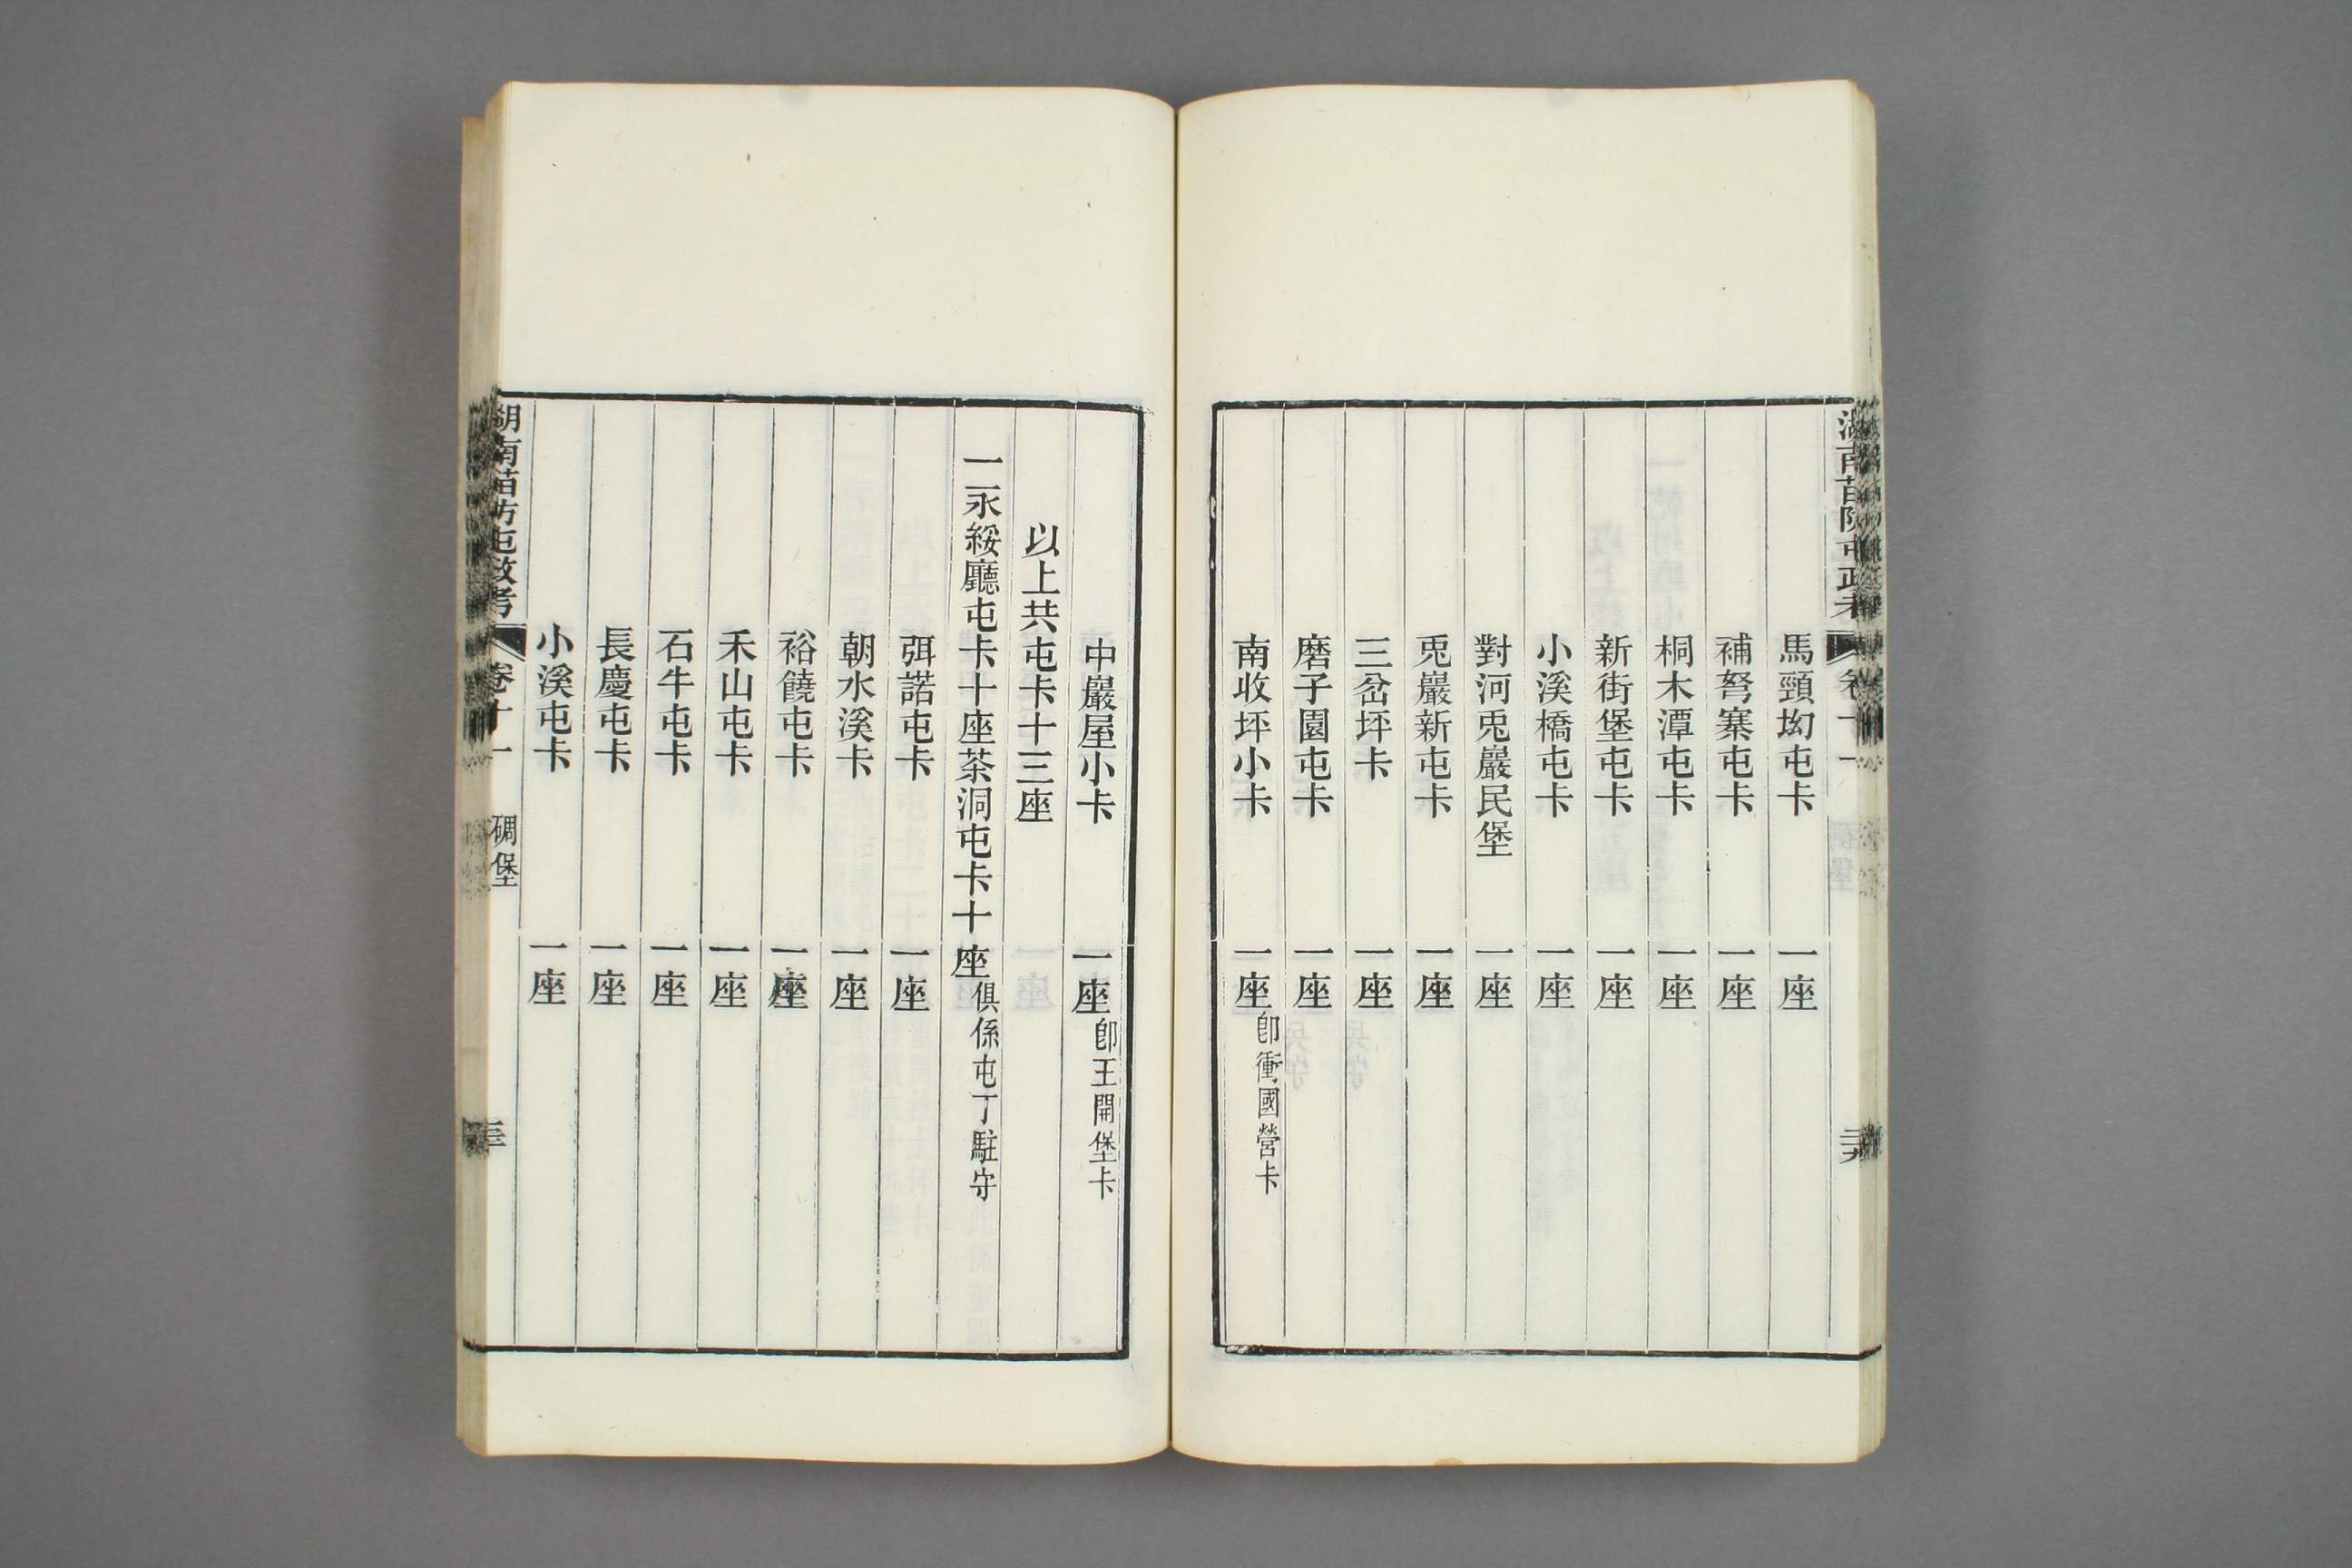 馬頸坳屯卡 一座
補弩寨屯卡 一座
桐木潭屯卡 一座
新街堡屯卡 一座
小溪橋屯卡 一座
對河兎巖民堡 一座
兎巖新屯卡 一座
三岔坪卡 一座
磨子園屯卡 一座
南收坪小卡 一座卽衝國營卡
中巖屋小卡 一座卽王開堡卡
以上共屯卡十三座
一永綏廳屯卡十座茶洞屯卡十一座俱係屯丁駐守
弭諾屯卡 一座
朝水溪卡 一座
裕饒屯卡 一座
禾山屯卡 一座
石牛屯卡 一座
長慶屯卡 一座
小溪屯卡 一座
湖南苗防屯政考 卷十一 碉堡